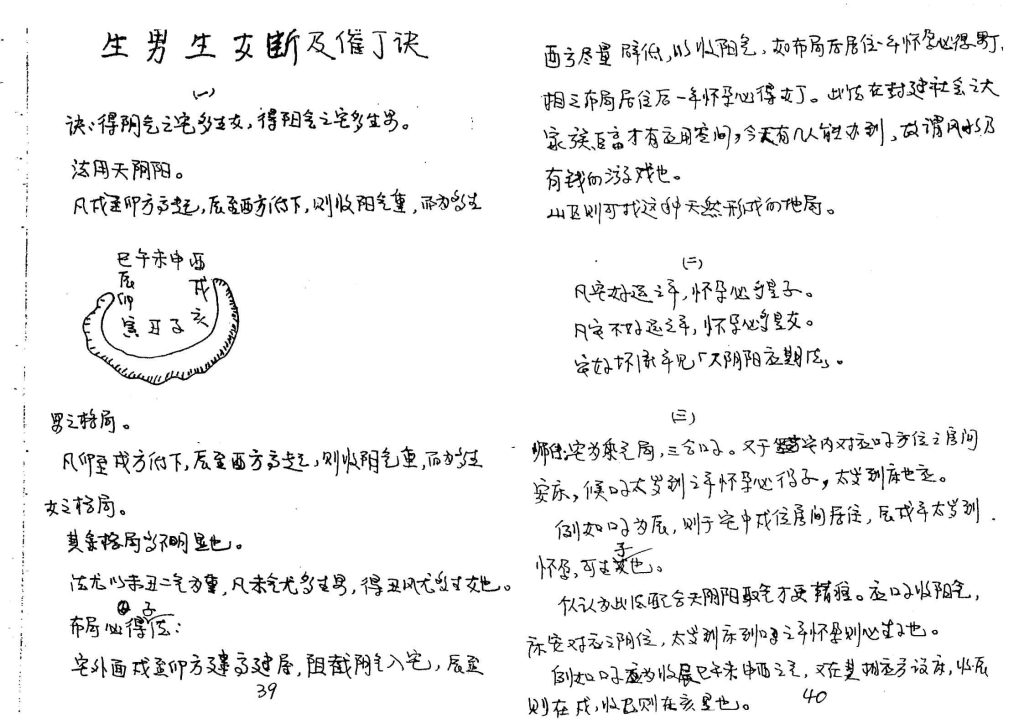 生男生女断及催丁诀
(一)
诀:得阴气之宅多生女,得阳气之宅多生男。
法用天阴阳。
凡戌至卯方高起,辰至酉方低下,则收阳气重,而为多生
巳午未申酉
辰 戌
卯 亥
寅丑子
男之格局。
凡卯至戌方低下,辰至酉方高起,则收阴气重,而为多生
女之格局。
其余格局为不明显也。
法尤以未丑二气为重,凡未气尤多生男,得丑风尤多生女也。
布局必得子法:
宅外面戌至卯方建高建屋,阻截阴气入宅,辰至
39
酉方尽量降低,以收阳气,如布局后居住一年怀孕必得男丁,
相之布局居住后一年怀孕必得女丁。此法在封建社会之大
家族巨富才有应用空间,今天有几人能办到,故谓风水乃
有钱的游戏也。
山区则可找这种天然形成的地局。
(二)
凡宅好运之年,怀孕必多是子。
凡宅不好运之年,怀孕必多是女。
宅好坏流年见「天阴阳应期法」。
(三)
师传:宅为乘气局,三合口。又于宅内对应口方位之房间
安床,候口太岁到之年怀孕必得子,太岁到床也应。
例如口为辰,则于宅中戌位房间居住,辰戌年太岁到
怀孕,可生子也。
但认为此法配合天阴阳取气才更精确。应口收阳气,
床安对应之阴位,太岁到床到口之年怀孕则必生子也。
例如口应为收辰巳午未申酉之气,又在其相应方设床,收辰
则在戌,收巳则在亥是也。
40